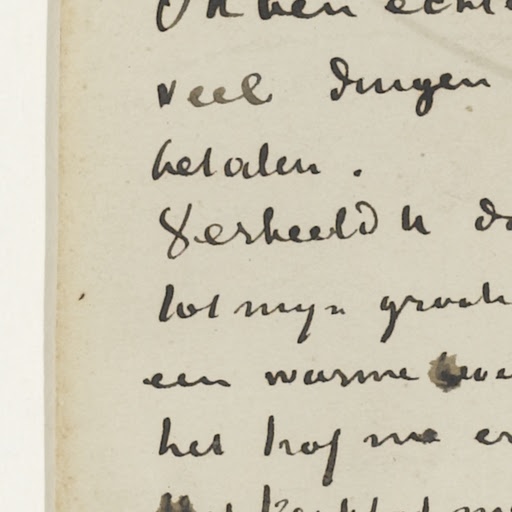 Ik ben echt
veel dingen
betalen.
Verbeeld U da
tot mijn groot
een warme
het trof me er